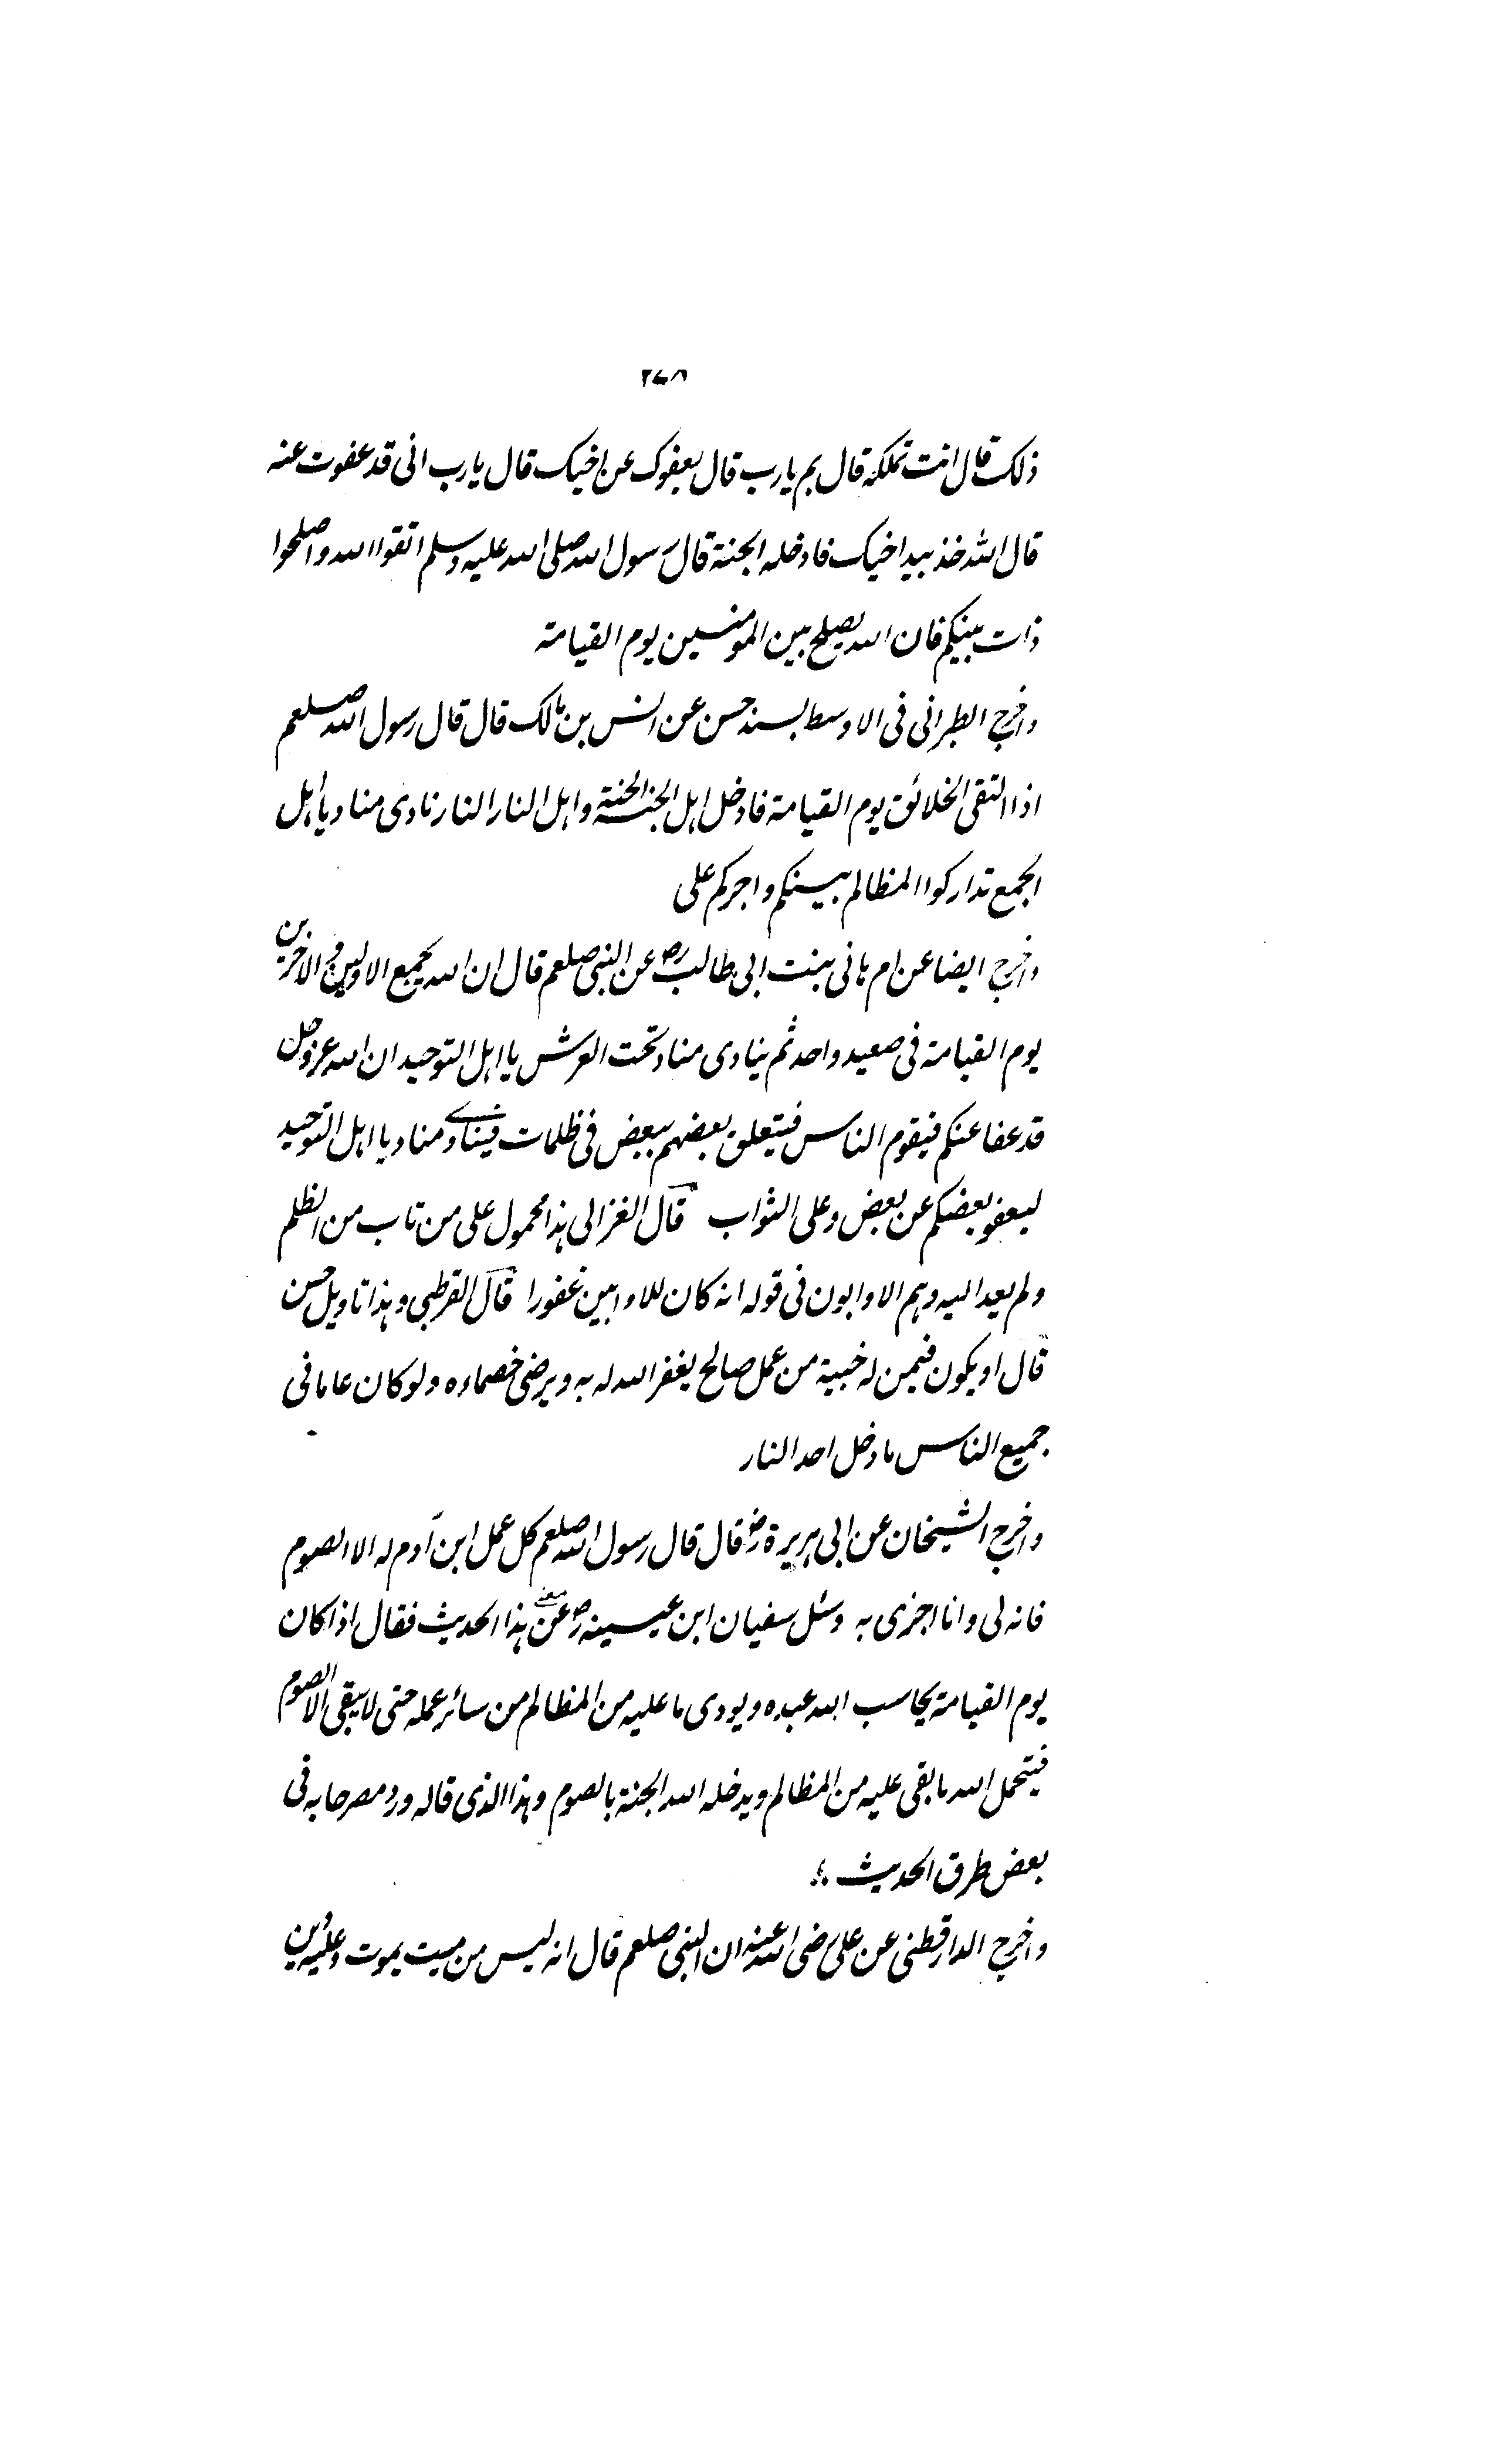 ۲۷۸
ذلک قال انت تملکہ قال بم یا رب قال بعفوک عن اخیک قال یا رب انی قد عفوت عنہ
قال اللہ خذ بید اخیک فادخلہ الجنۃ قال رسول اللہ صلی اللہ علیہ وسلم اتقوا اللہ واصلحوا
ذات بینکم فان اللہ یصلح بین المومنین یوم القیامۃ
واخرج الطبرانی فی الاوسط بسند حسن عن انس بن مالک قال قال رسول اللہ صلعم
اذا التقی الخلائق یوم القیامۃ فادخل اہل الجنۃ الجنۃ واہل النار النار نادی مناد یا اہل
الجمع تدارکوا المظالم بینکم واجرکم علی
واخرج ایضا عن ام ہانی بنت ابی طالب رض عن النبی صلعم قال ان اللہ یجمع الاولین والاخرین
یوم القیامۃ فی صعید واحد ثم ینادی مناد تحت العرش یا اہل التوحید ان اللہ عزوجل
قد عفا عنکم فیقوم الناس فیتعلق بعضہم ببعض فی ظلمات فینادی مناد یا اہل التوحید
لیعفو بعضکم عن بعض وعلی الثواب قال الغزالی ہذا محمول علی من تاب من الظلم
ولم یعد الیہ وہم الاوابون فی قولہ انہ کان للاوابین غفورا قال القرطبی وہذا تاویل حسن
قال او یکون فیمن لہ خبیۃ من عمل صالح یغفر اللہ لہ بہ ویرضی خصماءہ ولو کان عاما فی
جمیع الناس ما دخل احد النار
واخرج الشیخان عن ابی ہریرۃ رض قال قال رسول اللہ صلعم کل عمل ابن آدم لہ الا الصوم
فانہ لی وانا اجزی بہ وسئل سفیان ابن عیینہ رض عن معنی ہذا الحدیث فقال اذا کان
یوم القیامۃ یحاسب اللہ عبدہ ویودی ما علیہ من المظالم من سائر عملہ حتی لا یبقی الا الصوم
فیتحمل اللہ ما بقی علیہ من المظالم ویدخلہ اللہ الجنۃ بالصوم وہذا الذی قالہ ورد مصرحا بہ فی
بعض طرق الحدیث
واخرج الدارقطنی عن علی رضی اللہ عنہ ان النبی صلعم قال انہ لیس من میت یموت وعلیہ دین